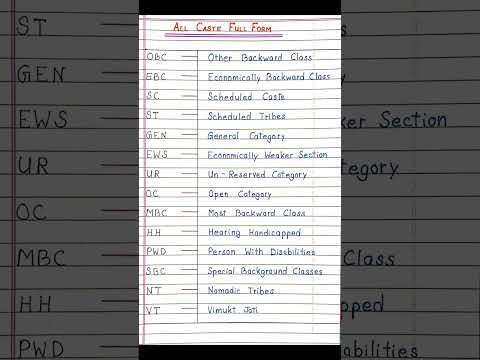 All Caste Full Form
OBC — Other Backward Class
EBC — Economically Backward Class
SC — Scheduled Caste
ST — Scheduled Tribes
GEN — General Category
EWS — Economically Weaker Section
UR — Un-Reserved Category
OC — Open Category
MBC — Most Backward Class
HH — Hearing Handicapped
PWD — Person With Disabilities
SBC — Special Background Classes
NT — Nomadic Tribes
VT — Vimukt Jati
ST
GEN
EWS ker Section
UR tegory
OC
MBC Class
HH pped
PWD abilities